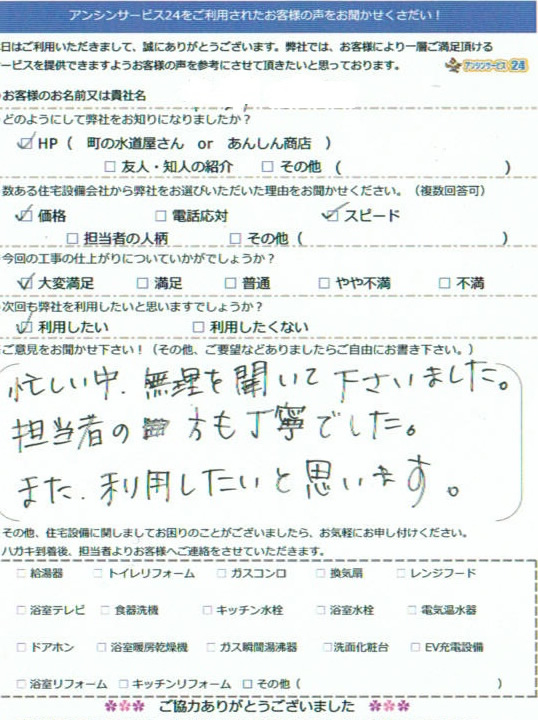 アンシンサービス24をご利用されたお客様の声をお聞かせくさだい！
日はご利用いただきまして、誠にありがとうございます。弊社では、お客様により一層ご満足頂ける
ービスを提供できますようお客様の声を参考にさせて頂きたいと思っております。
アンシンサービス24
お客様のお名前又は貴社名
どのようにして弊社をお知りになりましたか？
☑ HP（　町の水道屋さん　or　あんしん商店　）
□ 友人・知人の紹介　□ その他　（　　　　　　　　　　）
数ある住宅設備会社から弊社をお選びいただいた理由をお聞かせください。（複数回答可）
☑ 価格　　　□ 電話応対　　　☑ スピード
□ 担当者の人柄　　　□ その他（　　　　　　　　　　）
今回の工事の仕上がりについていかがでしょうか？
☑ 大変満足　□ 満足　□ 普通　□ やや不満　□ 不満
次回も弊社を利用したいと思いますでしょうか？
☑ 利用したい　　　□ 利用したくない
ご意見をお聞かせ下さい！（その他、ご要望などありましたらご自由にお書き下さい。）
忙しい中、無理を聞いて下さいました。
担当者の方も丁寧でした。
また、利用したいと思います。
その他、住宅設備に関しましてお困りのことがございましたら、お気軽にお申し付けください。
ハガキ到着後、担当者よりお客様へご連絡をさせていただきます。
□ 給湯器　□ トイレリフォーム　□ ガスコンロ　□ 換気扇　□ レンジフード
□ 浴室テレビ　□ 食器洗機　□ キッチン水栓　□ 浴室水栓　□ 電気温水器
□ ドアホン　□ 浴室暖房乾燥機　□ ガス瞬間湯沸器　□洗面化粧台　□ EV充電設備
□ 浴室リフォーム　□ キッチンリフォーム　□ その他（　　　　　　　　　　）
ご協力ありがとうございました